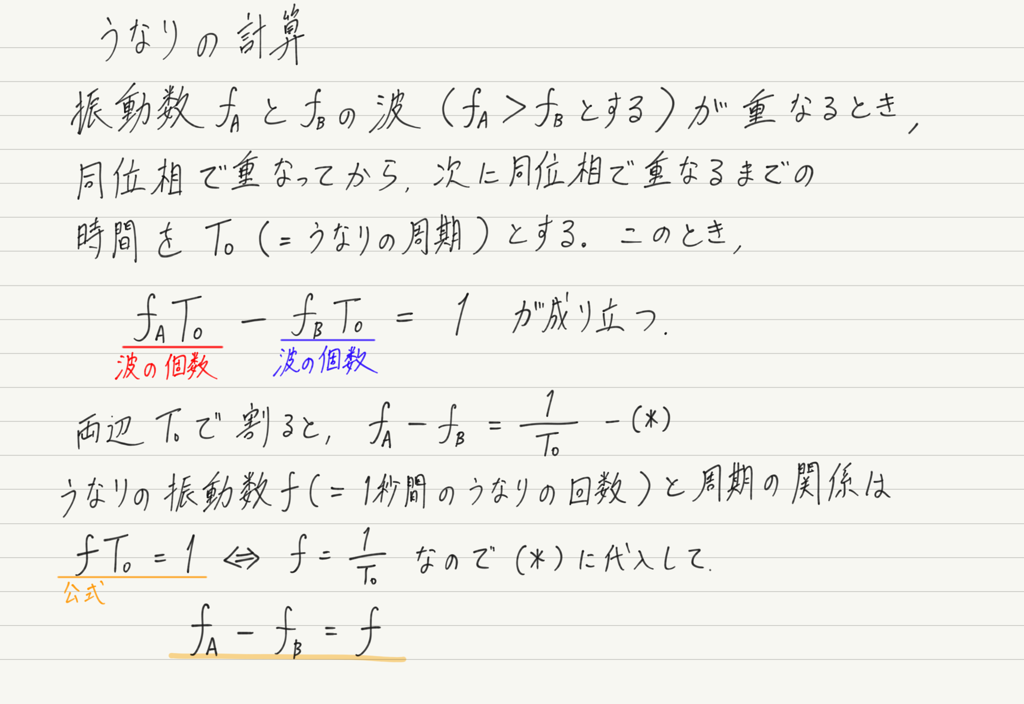 うなりの計算
振動数 f_A と f_B の波 (f_A > f_B とする) が重なるとき,
同位相で重なってから, 次に同位相で重なるまでの
時間を T₀ (= うなりの周期) とする. このとき,
f_A T₀ − f_B T₀ = 1 が成り立つ.
波の個数 波の個数
両辺 T₀ で割ると, f_A − f_B = 1/T₀ −(*)
うなりの振動数 f (= 1秒間のうなりの回数) と周期の関係は
f T₀ = 1 ⇔ f = 1/T₀ なので (*) に代入して.
公式
f_A − f_B = f